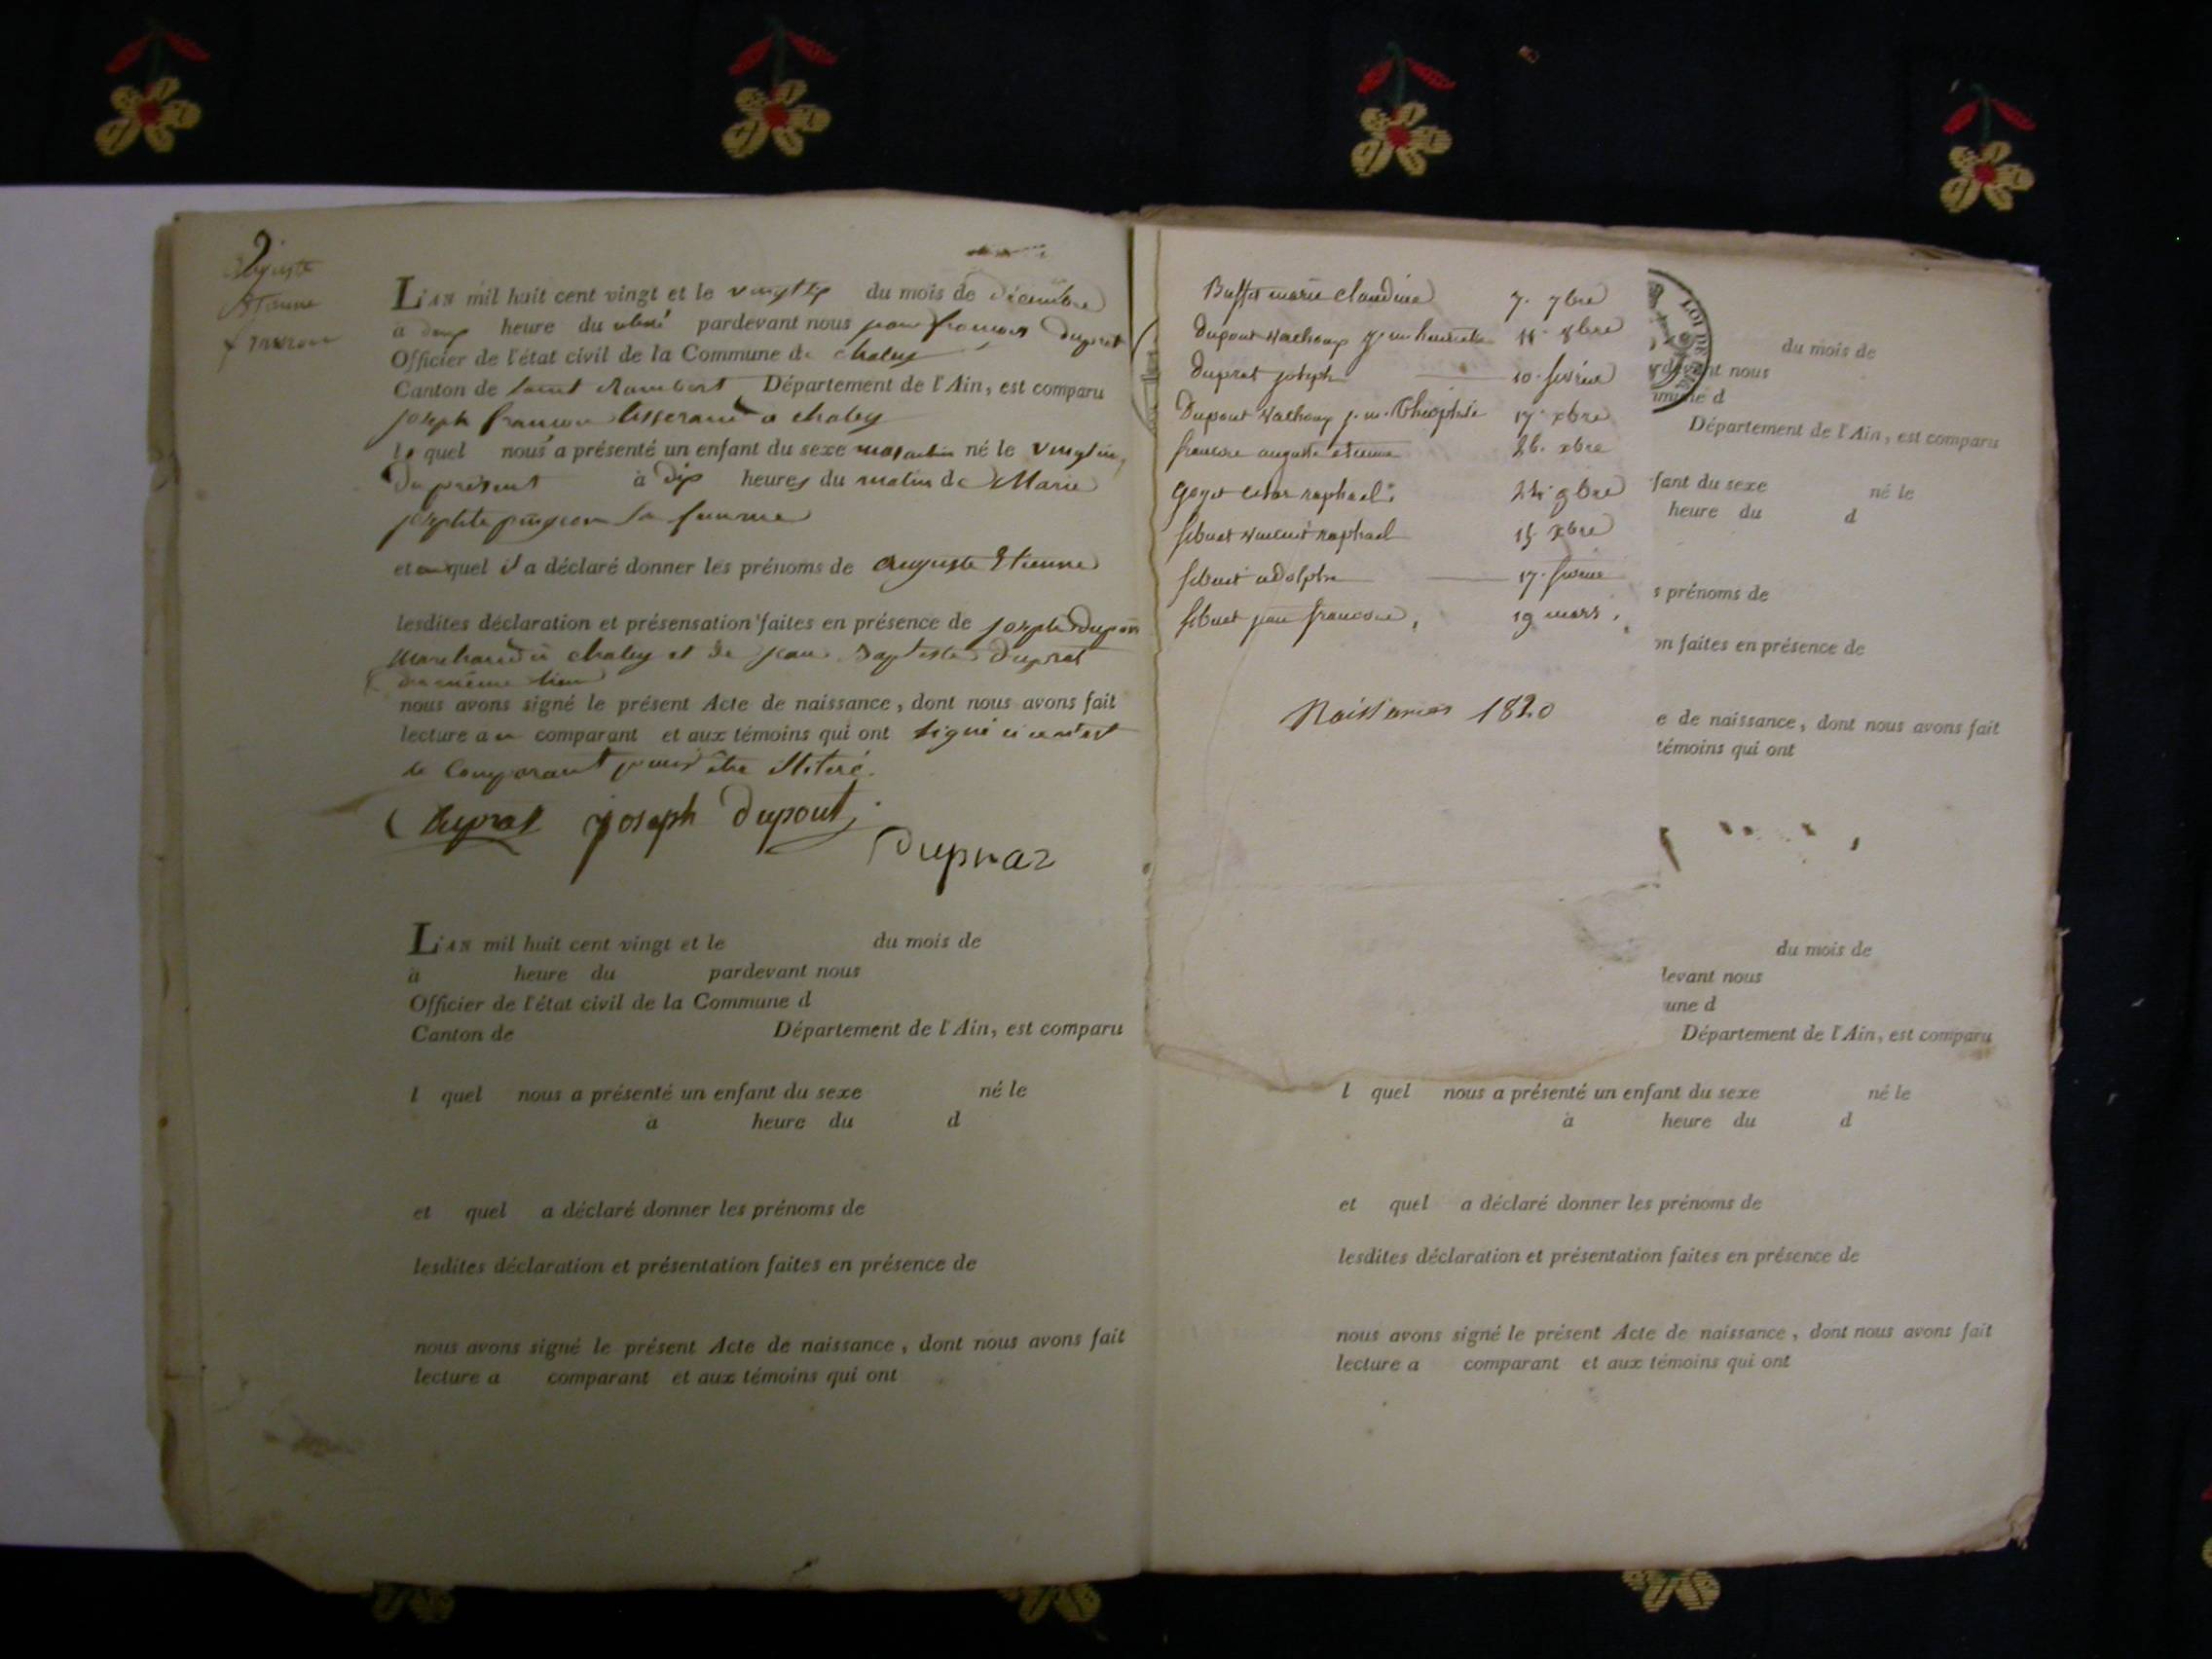 9.
Auguste
Etienne
L'AN mil huit cent vingt et le vingt six du mois de décembre
à heure du pardevant nous jean françois Duprat
Officier de l'état civil de la Commune de chaley
Canton de saint Rambert Département de l'Ain, est comparu
joseph a chaley
le quel nous a présenté un enfant du sexe masculin né le vingt six
Du présent à dix heures du matin de Marie
sa femme
et au quel il a déclaré donner les prénoms de Auguste Etienne
lesdites déclaration et présensation faites en présence de joseph Dupont
Marchand à chaley et de jean Baptiste Duprat
du même lieu
nous avons signé le présent Acte de naissance, dont nous avons fait
lecture au comparant et aux témoins qui ont signé
le Comparant pour être illiteré.
Duprat joseph Dupont
Duprat
L'AN mil huit cent vingt et le du mois de
à heure du pardevant nous
Officier de l'état civil de la Commune d
Canton de Département de l'Ain, est comparu
l quel nous a présenté un enfant du sexe né le
à heure du d
et quel a déclaré donner les prénoms de
lesdites déclaration et présentation faites en présence de
nous avons signé le présent Acte de naissance, dont nous avons fait
lecture a comparant et aux témoins qui ont
Buffet marie claudine 7. 7bre
Dupont 11. 8bre
Duprat joseph 10. février
Dupont j. m. Théophile 17. xbre
auguste etienne 26. xbre
raphael 24. 9bre
sibuet vincent raphael 15 xbre
sibuet adolphe 17. février
sibuet jean 19 mars.
Naissances 1820
LOI DE
du mois de
rdevant nous
mmune d
Département de l'Ain, est comparu
fant du sexe né le
heure du d
s prénoms de
on faites en présence de
e de naissance, dont nous avons fait
témoins qui ont
du mois de
devant nous
une d
Département de l'Ain, est comparu
l quel nous a présenté un enfant du sexe né le
à heure du d
et quel a déclaré donner les prénoms de
lesdites déclaration et présentation faites en présence de
nous avons signé le présent Acte de naissance, dont nous avons fait
lecture a comparant et aux témoins qui ont